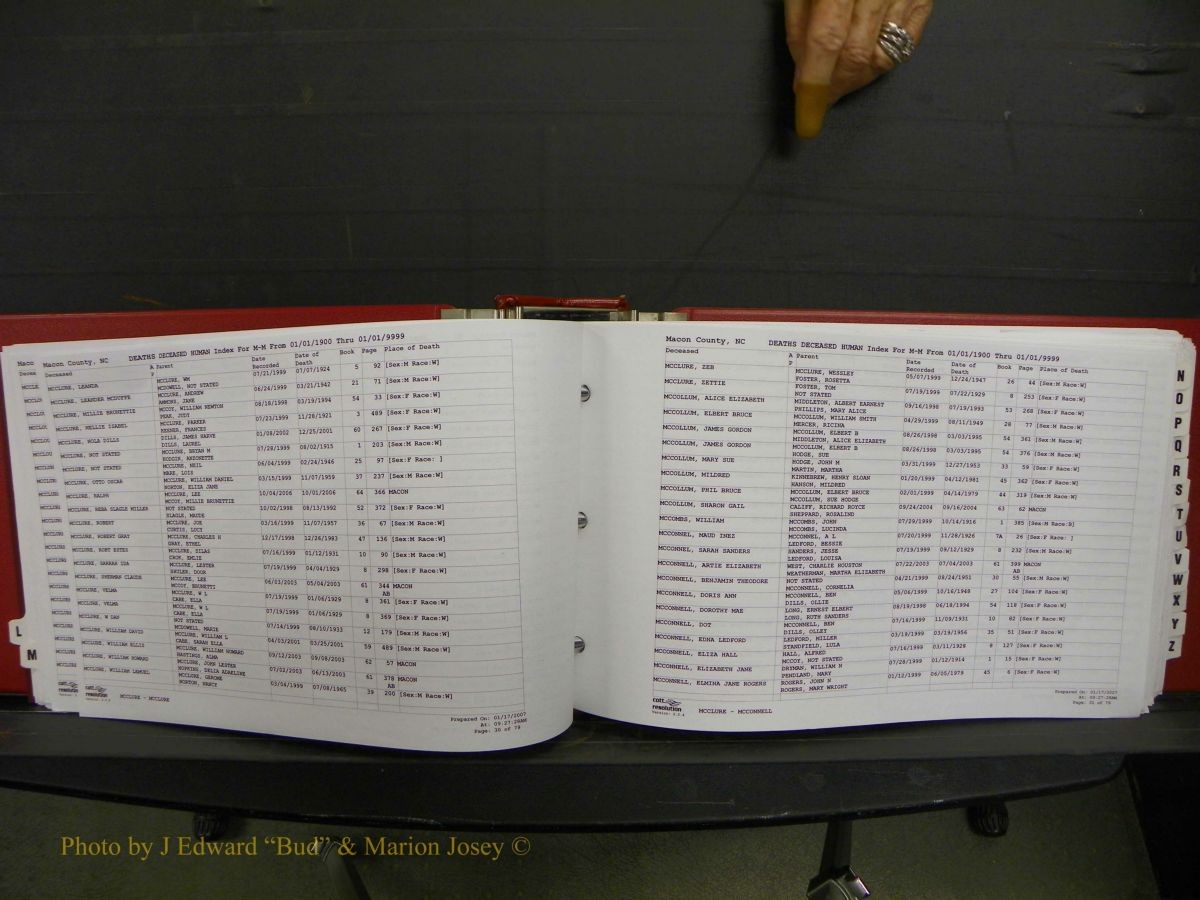 Macon County, NC DEATHS DECEASED HUMAN Index For M-M From 01/01/1900 Thru 01/01/9999
Deceased A Parent Date Recorded Date of Death Book Page Place of Death
P
MCCLURE, LEANDA MCCLURE, WM 07/21/1999 07/07/1924 5 92 [Sex:M Race:W]
MCDOWELL, NOT STATED
MCCLURE, LEANDER MCDUFFE MCCLURE, ANDREW 06/24/1999 03/21/1942 21 71 [Sex:M Race:W]
AMMONS, JANE
MCCLURE, MILLIE BRUNETTIE MCCOY, WILLIAM NEWTON 08/18/1998 03/19/1994 54 33 [Sex:F Race:W]
PEAK, JUDY
MCCLURE, NELLIE ISABEL MCCLURE, PARKER 07/23/1999 11/28/1921 3 489 [Sex:F Race:W]
KEENER, FRANCES
MCCLURE, NOLA DILLS DILLS, JAMES HARVE 01/08/2002 12/25/2001 60 267 [Sex:F Race:W]
DILLS, LAUREL
MCCLURE, NOT STATED MCCLURE, BRYAN M 07/28/1999 08/02/1915 1 203 [Sex:M Race:W]
MCCLURE, NOT STATED MCCLURE, NEIL 06/04/1999 02/24/1946 25 97 [Sex:F Race: ]
MCCLURE, OTTO OSCAR MCCLURE, WILLIAM DANIEL 03/15/1999 11/07/1959 37 237 [Sex:M Race:W]
NORTON, ELIZA JANE
MCCLURE, RALPH MCCLURE, LEE 10/04/2006 10/01/2006 64 366 MACON
MCCOY, MILLIE BRUNETTIE
MCCLURE, REBA SLAGLE MILLER NOT STATED 10/02/1998 08/13/1992 52 372 [Sex:F Race:W]
SLAGLE, MAUDE
MCCLURE, ROBERT MCCLURE, JOE 03/16/1999 11/07/1957 36 67 [Sex:M Race:W]
CURTIS, LUCY
MCCLURE, ROBERT GRAY MCCLURE, CHARLES H 12/17/1998 12/26/1983 47 136 [Sex:M Race:W]
GRAY, ETHEL
MCCLURE, ROBT ESTES MCCLURE, SILAS 07/16/1999 01/12/1931 10 90 [Sex:M Race:W]
MCCLURE, SARRAH IDA MCCLURE, LESTER 07/19/1999 04/04/1929 8 298 [Sex:F Race:W]
MCCLURE, SHERMAN CLAUDE MCCLURE, LEE 06/03/2003 05/04/2003 61 344 MACON
MCCOY, BRUNETTI AB
MCCLURE, VELMA MCCLURE, W L 07/19/1999 01/06/1929 8 361 [Sex:F Race:W]
CABE, ELLA
MCCLURE, VELMA MCCLURE, W L 07/19/1999 01/06/1929 8 369 [Sex:F Race:W]
CABE, ELLA
MCCLURE, W DAN NOT STATED 07/14/1999 08/10/1933 12 179 [Sex:M Race:W]
MCDOWELL, MARIE
MCCLURE, WILLIAM DAVIS MCCLURE, WILLIAM L 04/03/2001 03/25/2001 59 489 [Sex:M Race:W]
CABE, SARAH ELLA
MCCLURE, WILLIAM ELLIS MCCLURE, WILLIAM HOWARD 09/12/2003 09/08/2003 62 57 MACON
HASTINGS, ALMA
MCCLURE, WILLIAM HOWARD MCCLURE, JOHN LESTER 07/02/2003 06/13/2003 61 378 MACON
HOPKINS, DELIA ADALINE AB
MCCLURE, WILLIAM LAMUEL MCCLURE, GEROME 03/04/1999 07/08/1965 39 200 [Sex:M Race:W]
NORTON, NANCY
cott resolution
MCCLURE - MCCLURE
Prepared On: 01/17/2007
At: 09:27:28AM
Page: 30 of 79
Macon County, NC DEATHS DECEASED HUMAN Index For M-M From 01/01/1900 Thru 01/01/9999
Deceased A Parent Date Recorded Date of Death Book Page Place of Death
P
MCCLURE, ZEB MCCLURE, WESSLEY 05/07/1999 12/24/1947 26 44 [Sex:M Race:W]
FOSTER, ROSETTA
MCCLURE, ZETTIE FOSTER, TOM 07/19/1999 07/22/1929 8 253 [Sex:F Race:W]
NOT STATED
MCCOLLUM, ALICE ELIZABETH MIDDLETON, ALBERT EARNEST 09/16/1998 07/19/1993 53 268 [Sex:F Race:W]
PHILLIPS, MARY ALICE
MCCOLLUM, ELBERT BRUCE MCCOLLUM, WILLIAM SMITH 04/29/1999 08/11/1949 28 77 [Sex:M Race:W]
MERCER, RICINA
MCCOLLUM, JAMES GORDON MCCOLLUM, ELBERT B 08/26/1998 03/03/1995 54 361 [Sex:M Race:W]
MIDDLETON, ALICE ELIZABETH
MCCOLLUM, JAMES GORDON MCCOLLUM, ELBERT B 08/26/1998 03/03/1995 54 376 [Sex:M Race:W]
HODGE, SUE
MCCOLLUM, MARY SUE HODGE, JOHN M 03/31/1999 12/27/1953 33 59 [Sex:F Race:W]
MARTIN, MARTHA
MCCOLLUM, MILDRED KINNEBREW, HENRY SLOAN 01/20/1999 04/12/1981 45 362 [Sex:F Race:W]
HANSON, MILDRED
MCCOLLUM, PHIL BRUCE MCCOLLUM, ELBERT BRUCE 02/01/1999 04/14/1979 44 319 [Sex:M Race:W]
MCCOLLUM, SUE HODGE
MCCOLLUM, SHARON GAIL CALIFF, RICHARD ROYCE 09/24/2004 09/16/2004 63 62 MACON
SHEPPARD, ROSALIND
MCCOMBS, WILLIAM MCCOMBS, JOHN 07/29/1999 10/14/1916 1 385 [Sex:M Race:B]
MCCOMBS, LUCINDA
MCCONNEL, MAUD INEZ MCCONNEL, A L 07/20/1999 11/28/1926 7A 26 [Sex:F Race: ]
LEDFORD, BESSIE
MCCONNEL, SARAH SANDERS SANDERS, JESSE 07/19/1999 09/12/1929 8 232 [Sex:M Race:W]
LEDFORD, LOUISA
MCCONNELL, ARTIE ELIZABETH WEST, CHARLIE HOUSTON 07/22/2003 07/04/2003 61 399 MACON
WEATHERMAN, MARTHA ELIZABETH AB
MCCONNELL, BENJAMIN THEODORE NOT STATED 04/21/1999 08/24/1951 30 55 [Sex:M Race:W]
MCCONNELL, CORNELIA
MCCONNELL, DORIS ANN MCCONNELL, BEN 05/06/1999 10/16/1948 27 104 [Sex:F Race:W]
DILLS, OLLIE
MCCONNELL, DOROTHY MAE LONG, ERNEST ELBERT 08/19/1998 06/18/1994 54 118 [Sex:F Race:W]
LONG, RUTH SANDERS
MCCONNELL, DOT MCCONNELL, BEN 07/16/1999 11/09/1931 10 82 [Sex:F Race:W]
DILLS, OLLEY
MCCONNELL, EDNA LEDFORD LEDFORD, MILLER 03/19/1999 03/19/1956 35 51 [Sex:F Race:W]
STANDFIELD, LULA
MCCONNELL, ELIZA HALL HALL, ALFRED 07/16/1999 03/11/1928 8 127 [Sex:F Race:W]
MCCOY, NOT STATED
MCCONNELL, ELIZABETH JANE DRYMAN, WILLIAM H 07/28/1999 01/12/1914 1 15 [Sex:F Race:W]
PENDLAND, MARY
MCCONNELL, ELMINA JANE ROGERS ROGERS, JOHN N 01/12/1999 06/05/1979 45 6 [Sex:F Race:W]
ROGERS, MARY WRIGHT
cott resolution
MCCLURE - MCCONNELL
Prepared On: 01/17/2007
At: 09:27:28AM
Page: 31 of 79
L
M
N
O
P
Q
R
S
T
U
V
W
X
Y
Z
Photo by J Edward “Bud” & Marion Josey ©